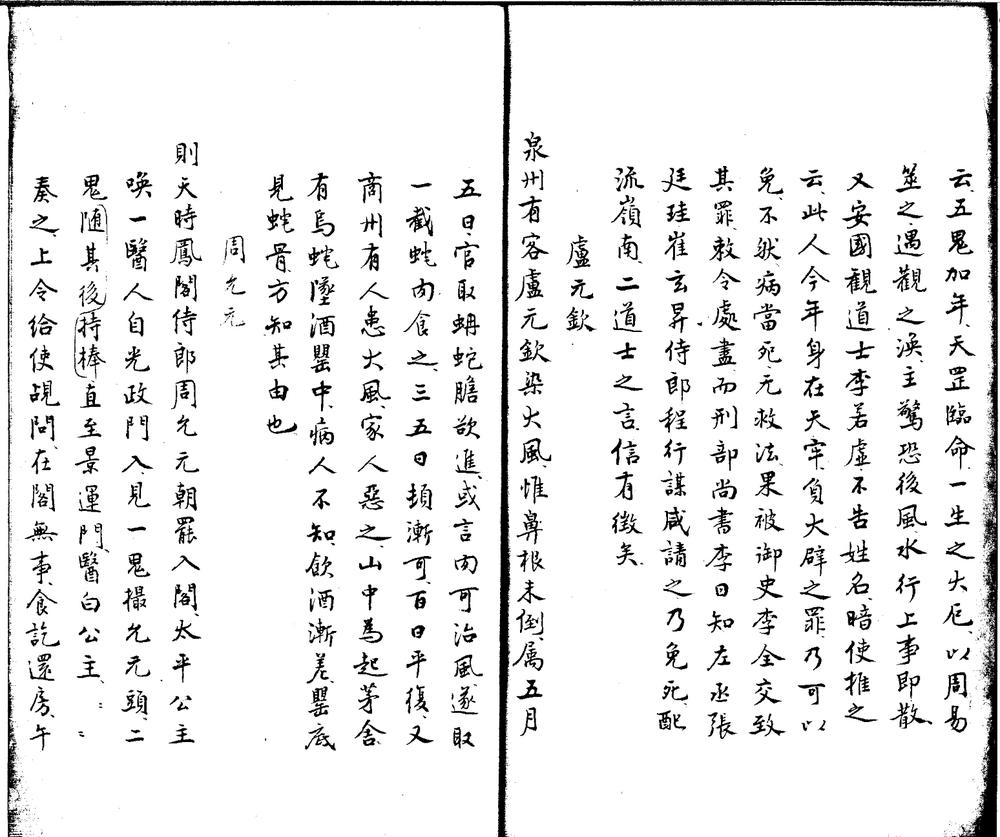 云五鬼加年天罡臨命一生之大厄以周易
筮之遇觀之渙主驚恐後風水行上事即散
又安國觀道士李若虛不告姓名暗使推之
云此人今年身在天牢負大辟之罪乃可以
免不然病當死无救法果被御史李全交致
其罪敕令處盡而刑部尚書李日知左丞張
廷珪崔玄昇侍郎程行謀咸請之乃免死配
流嶺南二道士之言信有徵矣
盧元欽
泉州有客盧元欽染大風惟鼻根未倒属五月
五日官取蚺蛇膽欲進或言肉可治風遂取
一截蛇肉食之三五日頓漸可百日平復又
商州有人患大風家人惡之山中為起茅舍
有烏蛇墜酒罌中病人不知飲酒漸差罌底
見蛇骨方知其由也
周允元
則天時鳳閣侍郎周允元朝罷入閣太平公主
喚一醫人自光政門入見一鬼撮允元頭二
鬼随其後持棒直至景運門醫白公主〻〻
奏之上令給使覘問在閣無事食訖還房午